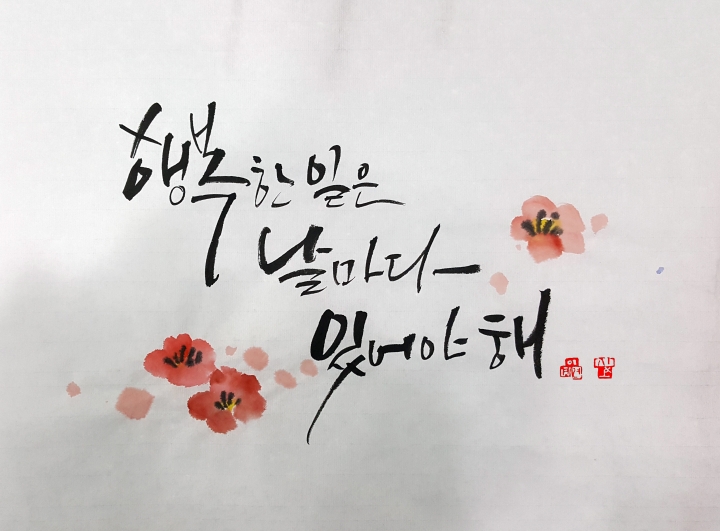 행복한 일은
날마다
있어야 해